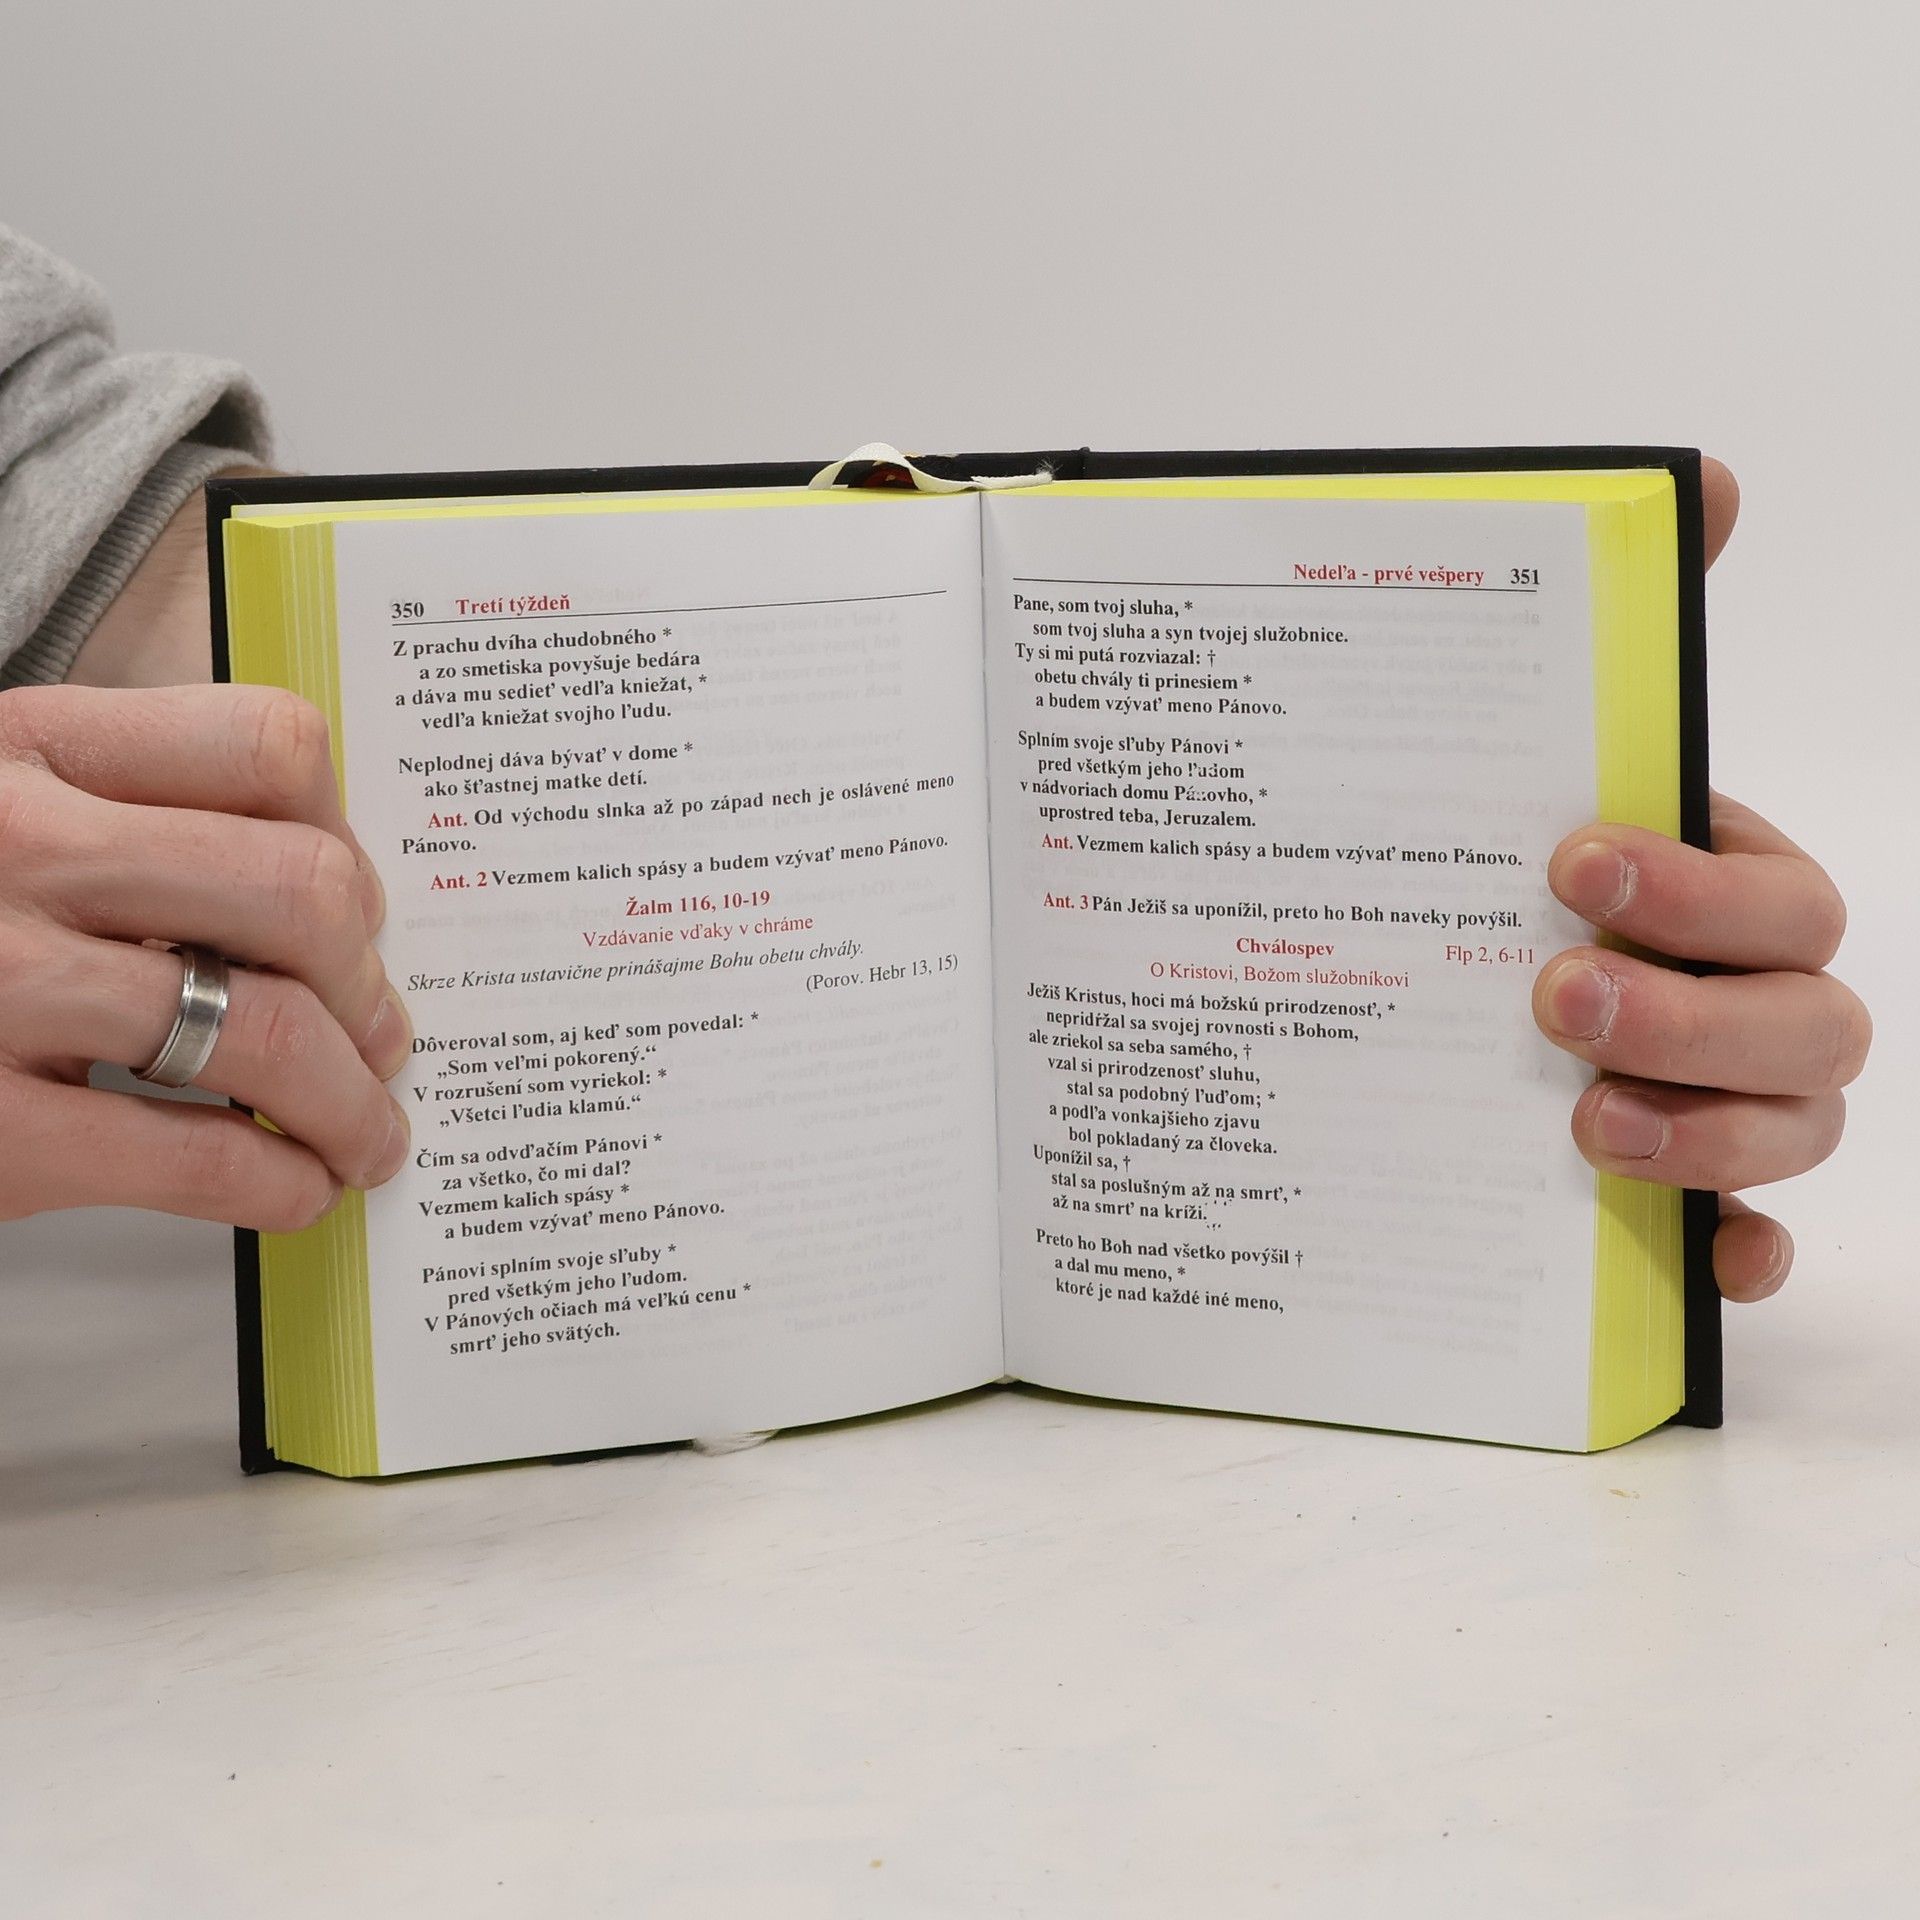 350 Tretí týždeň
Z prachu dvíha chudobného *
a zo smetiska povyšuje bedára
a dáva mu sedieť vedľa kniežat, *
vedľa kniežat svojho ľudu.
Neplodnej dáva bývať v dome *
ako šťastnej matke detí.
Ant. Od východu slnka až po západ nech je oslávené meno
Pánovo.
Ant. 2 Vezmem kalich spásy a budem vzývať meno Pánovo.
Žalm 116, 10-19
Vzdávanie vďaky v chráme
Skrze Krista ustavične prinášajme Bohu obetu chvály.
(Porov. Hebr 13, 15)
Dôveroval som, aj keď som povedal: *
„Som veľmi pokorený.“
V rozrušení som vyriekol: *
„Všetci ľudia klamú.“
Čím sa odvďačím Pánovi *
za všetko, čo mi dal?
Vezmem kalich spásy *
a budem vzývať meno Pánovo.
Pánovi splním svoje sľuby *
pred všetkým jeho ľudom.
V Pánových očiach má veľkú cenu *
smrť jeho svätých.
Nedeľa - prvé vešpery 351
Pane, som tvoj sluha, *
som tvoj sluha a syn tvojej služobnice.
Ty si mi putá rozviazal: †
obetu chvály ti prinesiem *
a budem vzývať meno Pánovo.
Splním svoje sľuby Pánovi *
pred všetkým jeho ľudom
v nádvoriach domu Pánovho, *
uprostred teba, Jeruzalem.
Ant. Vezmem kalich spásy a budem vzývať meno Pánovo.
Ant. 3 Pán Ježiš sa uponížil, preto ho Boh naveky povýšil.
Chválospev Flp 2, 6-11
O Kristovi, Božom služobníkovi
Ježiš Kristus, hoci má božskú prirodzenosť, *
nepridŕžal sa svojej rovnosti s Bohom,
ale zriekol sa seba samého, †
vzal si prirodzenosť sluhu,
stal sa podobný ľuďom; *
a podľa vonkajšieho zjavu
bol pokladaný za človeka.
Uponížil sa, †
stal sa poslušným až na smrť, *
až na smrť na kríži.
Preto ho Boh nad všetko povýšil †
a dal mu meno, *
ktoré je nad každé iné meno,